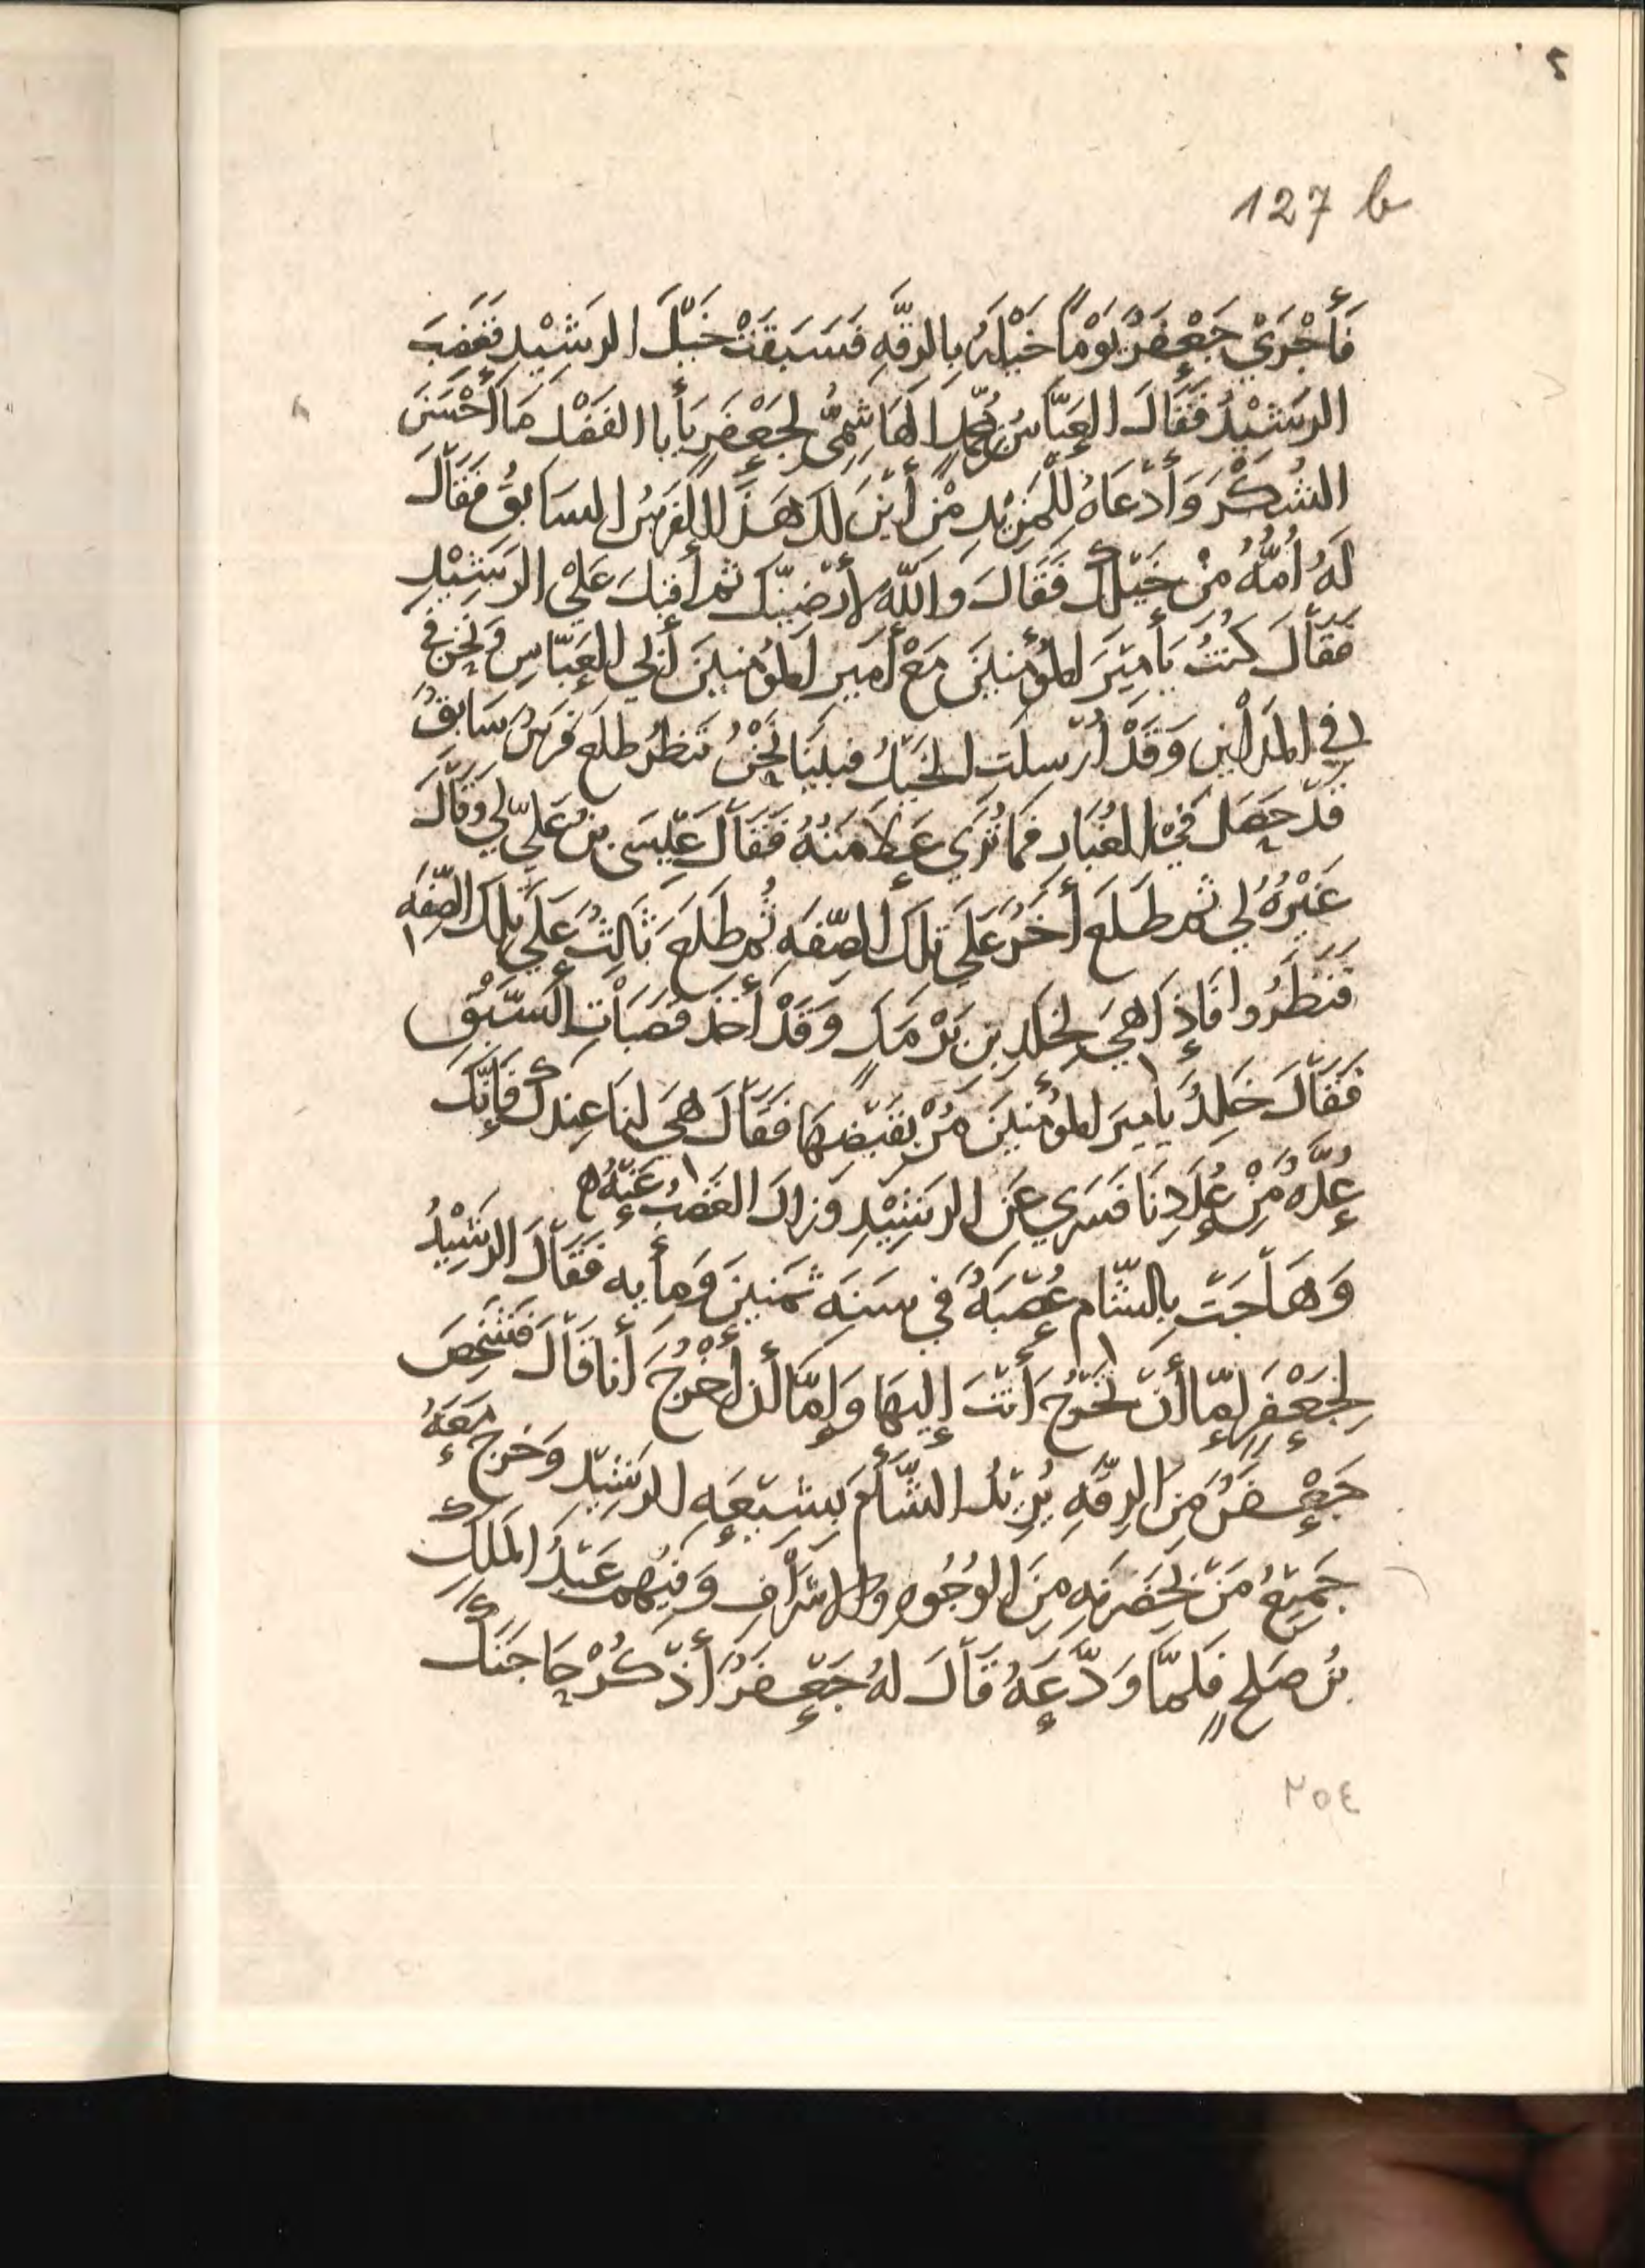 ٢
127 b
فَأَجْرَي جَعْفَرٌ يَوْماً خَيْلَهُ بِالرقَّهِ فَسَبَقَتْ خَيْلَ الرشِيْدِ فَغَضِبَ
الرشِيْدُ فَقَالَ العَبَّاسُ بن مُحَمَّدٍ الهَاشِمِيُّ لِجَعْفَرٍ يَأبا الفَضْلِ مَا أَحْسَنَ
الشُكْرَ وَأَدْعَاهُ لِلْمَزِيْدِ مِنْ أَيْنَ لَكَ هَذَا الفَرَسُ السَابِقُ فَقَالَ
لَهُ أُمُّهُ مِنْ خَيْلِكَ فَقَالَ وَاللّهِ لأُرْضِيَنَّكَ ثم أقبل عَلَي الرَشِيْدِ
فَقَالَ كُنْتُ يَأمِيْرَ المُؤْمِنِيْنَ مَعْ أَمِيرِ المُؤْمِنِيْنَ أَبِي العَبَّاسِ وَنَحْنُ في
في المَدَاينِ وَقَدْ أُرْسِلَتِ الخَيْلُ فبَيْنَا نَحْنُ نَنظُرُ طلَع فَرَسٌ سَابِقٌ
قَدْ حَصَل فِي الغُبَارِ فَمَا تُرَي عَلَامَتُهُ فَقَالَ عِيْسَى بنُ عَلِيّ لِي وَقَالَ
غَيْرُهُ لِي ثم طَلَعَ أَخَرُ عَلَي تِلكَ الصِّفَهِ ثُم طَلَعَ ثَالِثٌ عَلَي تِلكَ الصِّفَهِ
فَنَظَرُوا فَإِذَا هِيَ لِخَلِدِ بنِ بَرْمَكٍ وَقَدْ أَخَذَ قَصَبَاتِ السَبْقِ
فَقَالَ خَلِدٌ يأمِيرَ المُؤْمِنِيْنَ مُرْ بِقَبْضِهَا فَقَالَ هِيَ لنا عِنِدَكَ فَإِنَّكَ
عُدَّهٌ مِنْ عُدَدِنَا فَسُرِي عَنِ الرَشِيْدِ وَزَالَ الغَضَبُ عَنْهُ ه
وَهَاجَتْ بِالشَّامِ عُصْبَهُ فِي سَنَهِ ثَمَنِينَ وَمِأيه فَقَالَ الرشِيْدُ
لِجَعْفَرٍ إِمَّا أَنْ تَخْرُجَ أَنْتَ إِلَيهَا وَإِمَّا أن أَخْرُجَ أَنَا قَالَ فَشَخَصَ
جَعْفَرٌ مِنَ الرقَّهِ يُرِيْدُ الشَّأمَ يَشِيْعَهِ الرشِيْد وَخَرج مَعَهُ
جَمِيْعُ مَنْ بِحَضْرَتِهِ مِنَ الوُجُوهِ وَالاشرَافِ وَفِيْهم عَبْدُ المَلِكِ
بنُ صَلِحٍ فَلَمَّا وَدَّعَهُ قَالَ لَهُ جَعْفَرٌ أَذْكُرْ حَاجَتَكَ
٢٥٤